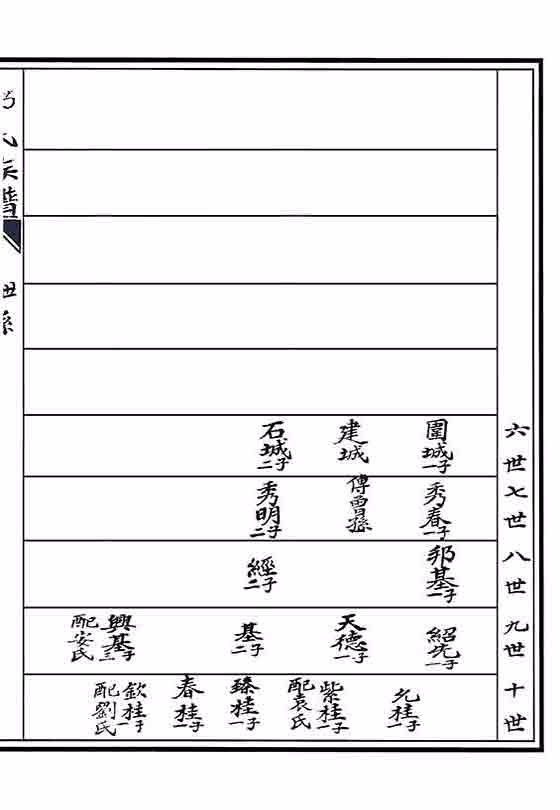 六世
圍城 一子
建城
石城 二子
七世
秀春 一子
傳曾孫
秀明 二子
八世
邦基 一子
經 二子
九世
紹先 一子
天德 一子
基 二子
興基 三子
配安氏
十世
允桂 一子
紫桂 一子
配袁氏
臻桂 一子
春桂 一子
欽桂 一子
配劉氏
氏族譜
世孫